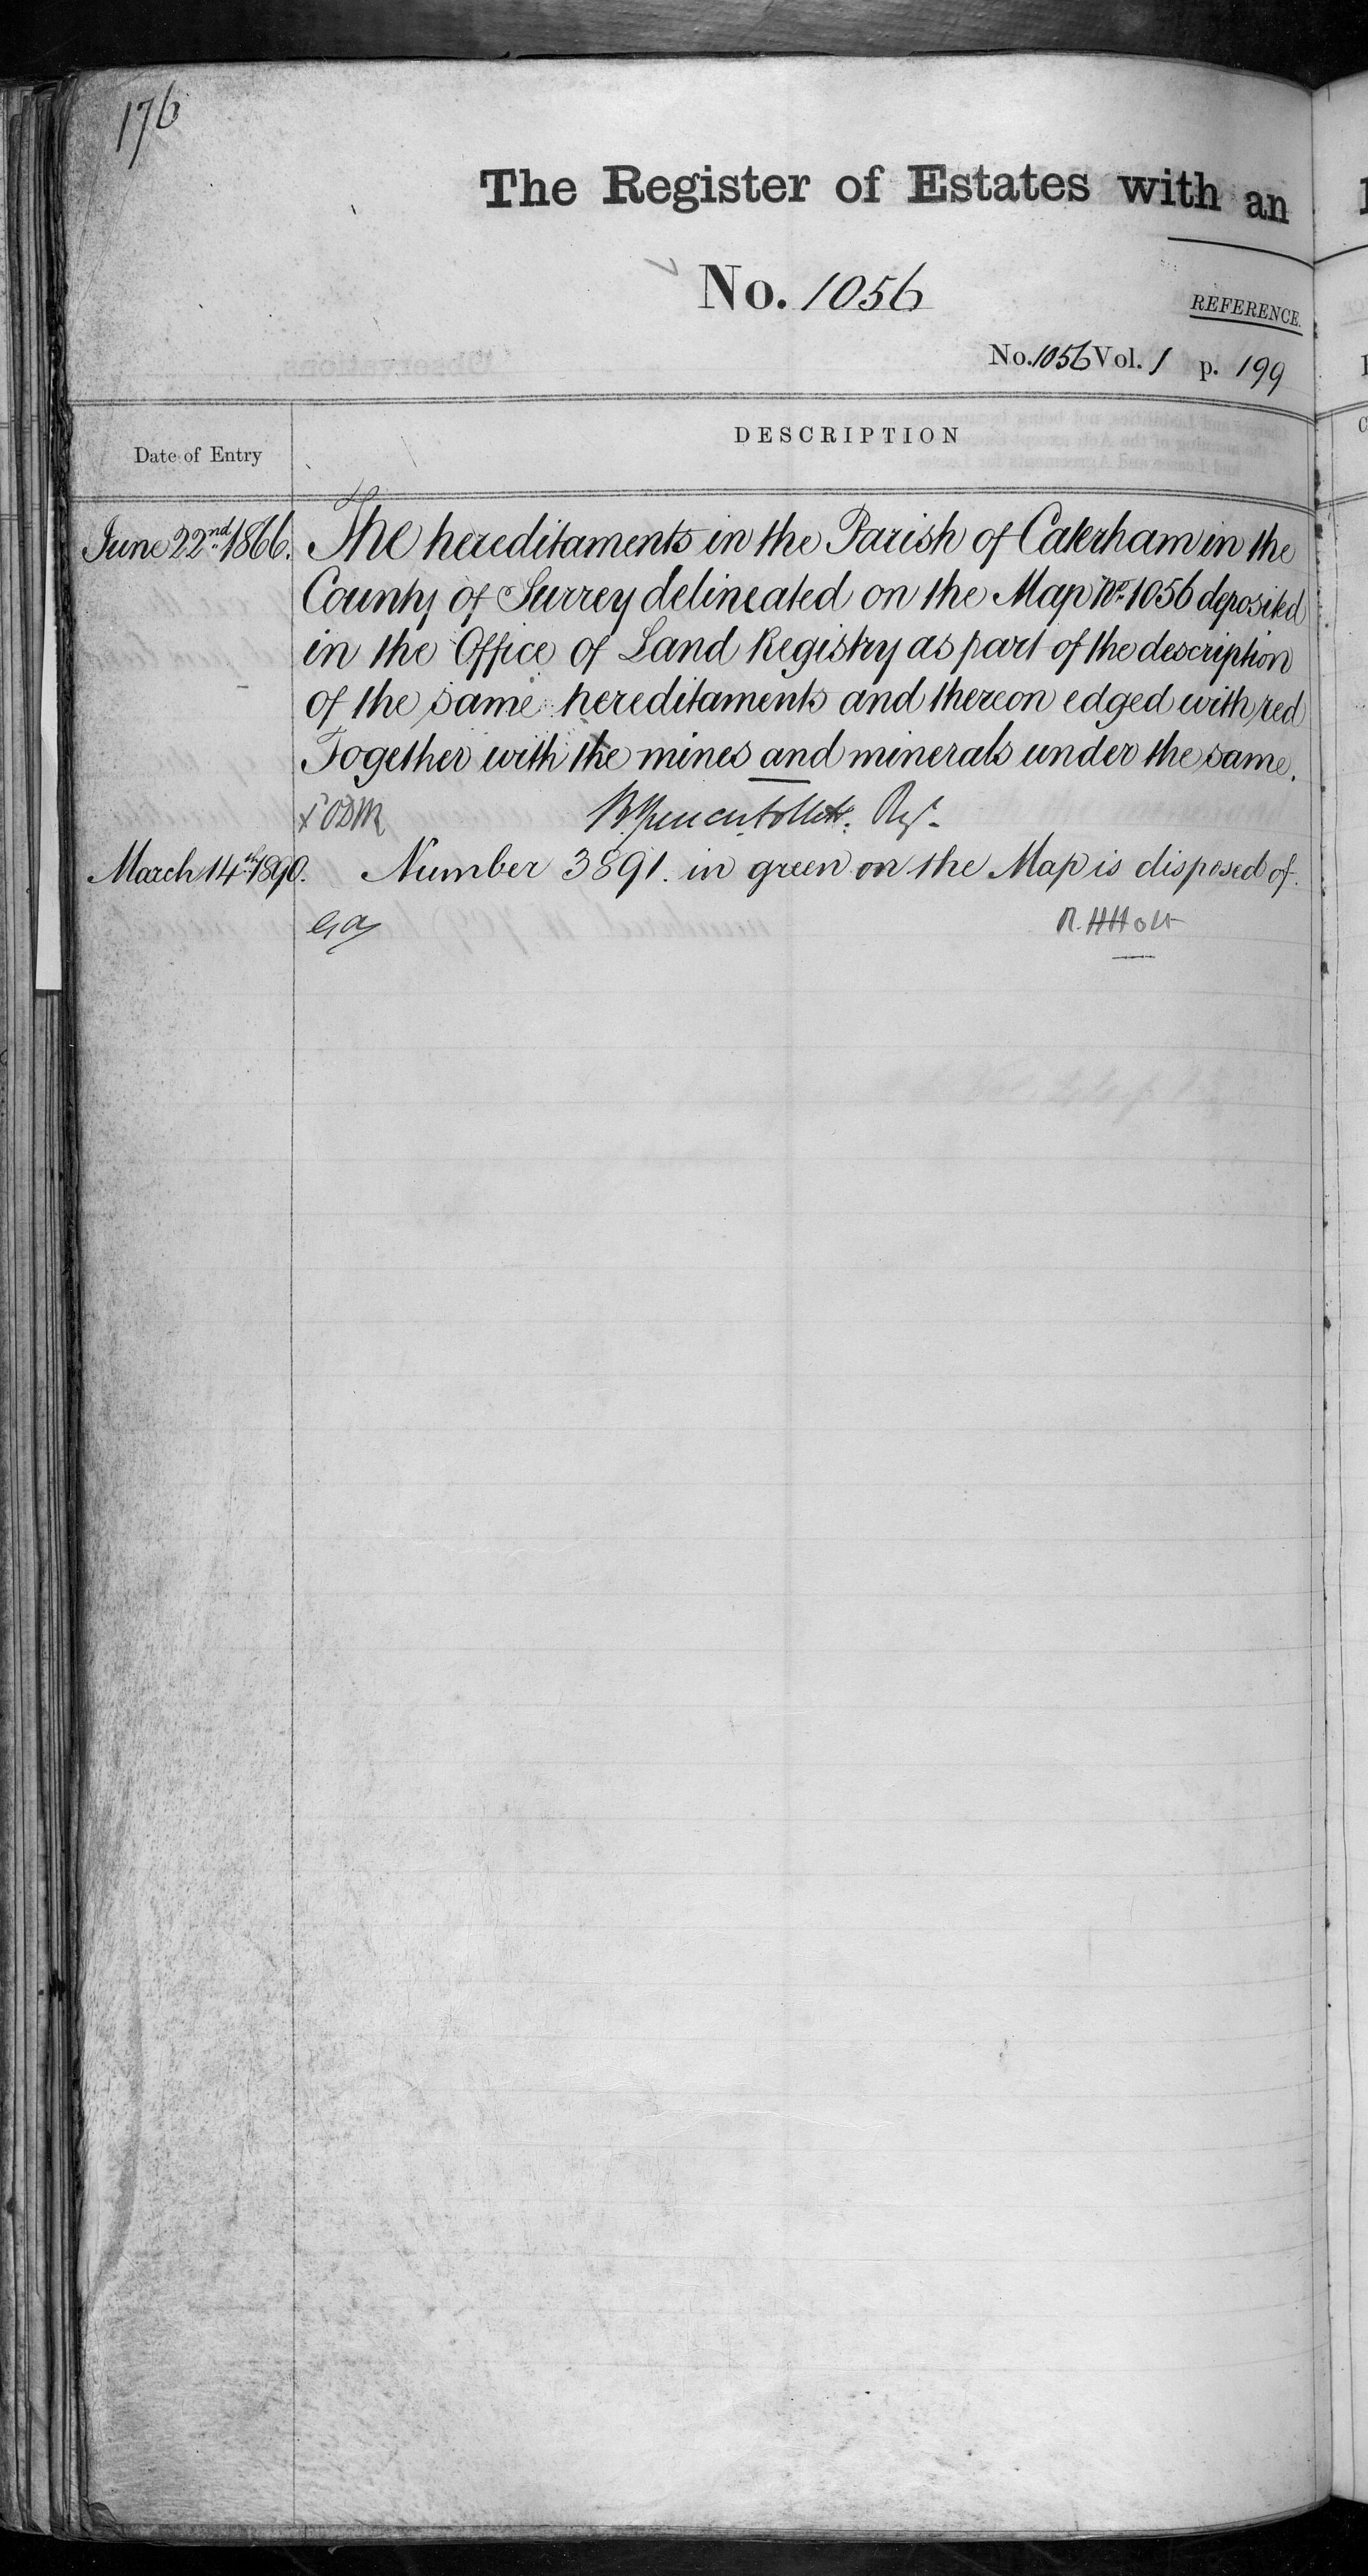 176
The Register of Estates with an
No. 1056
REFERENCE.
No. 1056 Vol. 1 p. 199
Date of Entry
DESCRIPTION
June 22nd 1866. The hereditaments in the Parish of Caterham in the
County of Surrey delineated on the Map No. 1056 deposited
in the Office of Land Registry as part of the description
of the same hereditaments and thereon edged with red
Together with the mines and minerals under the same.
March 14th 1890. Number 3891. in green on the Map is disposed of.
R. H Holt